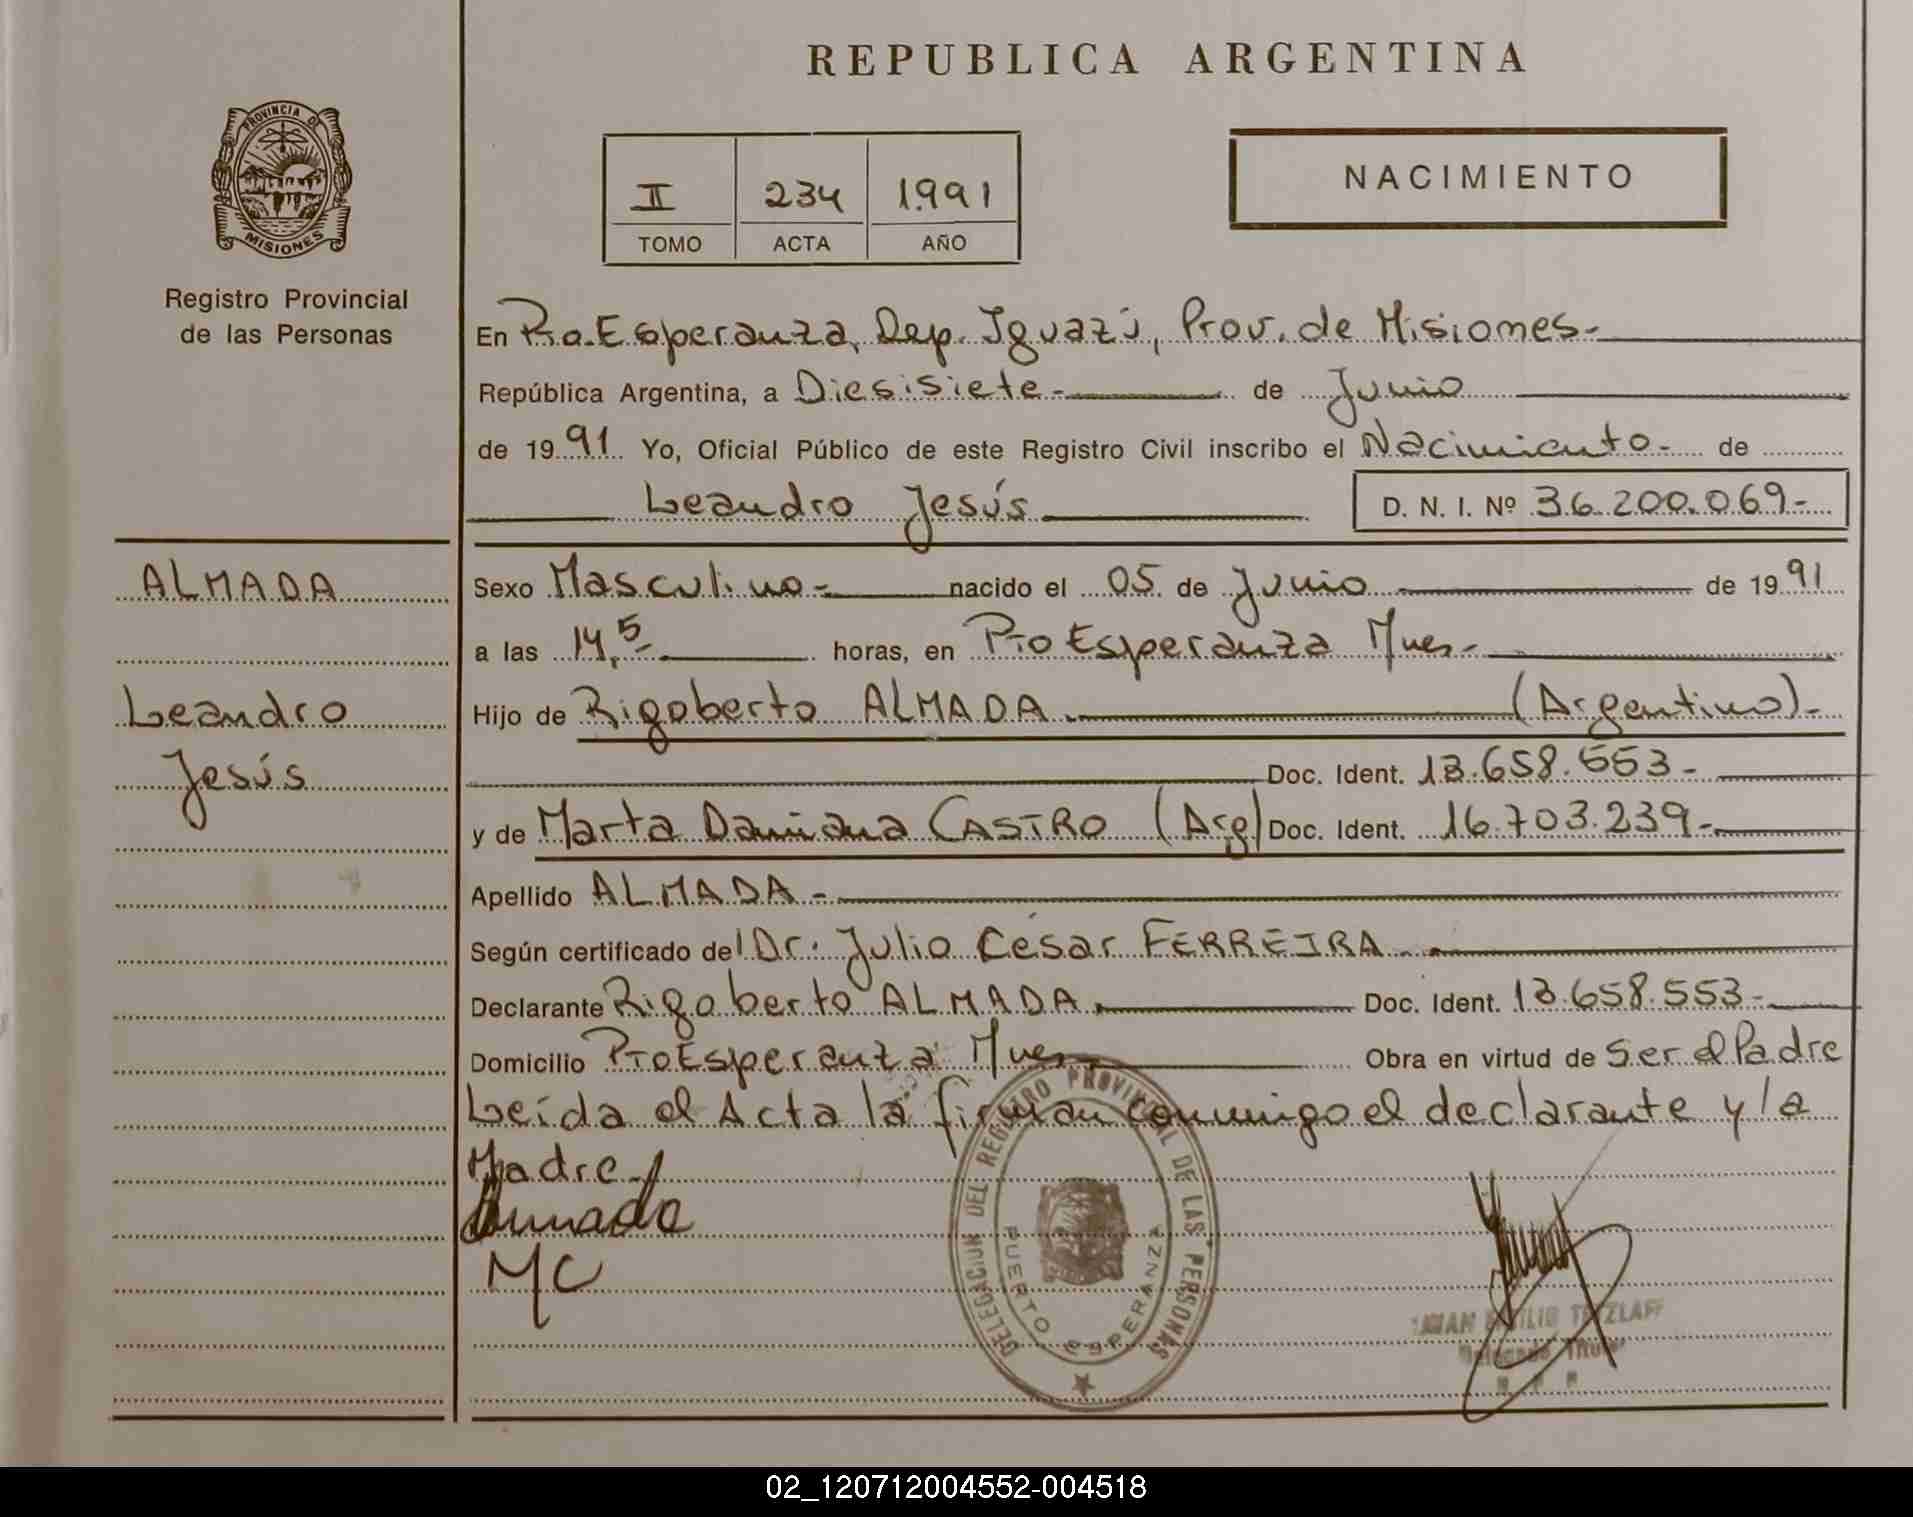 REPUBLICA ARGENTINA
PROVINCIA D
MISIONES
Registro Provincial
de las Personas
II 234 1991
TOMO ACTA AÑO
NACIMIENTO
En Pto. Esperanza, Dep. Iguazú, Prov. de Misiones.-
República Argentina, a Diesisiete.- de Junio
de 1991 Yo, Oficial Público de este Registro Civil inscribo el Nacimiento.- de
Leandro Jesús D. N. I. Nº 36.200.069-
ALMADA
Leandro
Jesús
Sexo Masculino.- nacido el 05 de Junio de 1991
a las 14,5- horas, en Pto Esperanza Mnes.-
Hijo de Rigoberto ALMADA.- (Argentino)-
Doc. Ident. 13.658.553-
y de Marta Damiana CASTRO (Arg) Doc. Ident. 16.703.239-
Apellido ALMADA-
Según certificado del Dr. Julio César FERREIRA
Declarante Rigoberto ALMADA. Doc. Ident. 13.658.553-
Domicilio Pto Esperanza Mnes.- Obra en virtud de Ser el Padre
Leída el Acta la firman conmigo el declarante y la
Madre.
MC
DELEGACION DEL REGISTRO PROVINCIAL DE LAS PERSONAS
PUERTO ESPERANZA
TETZLAFF
Delegado Titular
02_120712004552-004518